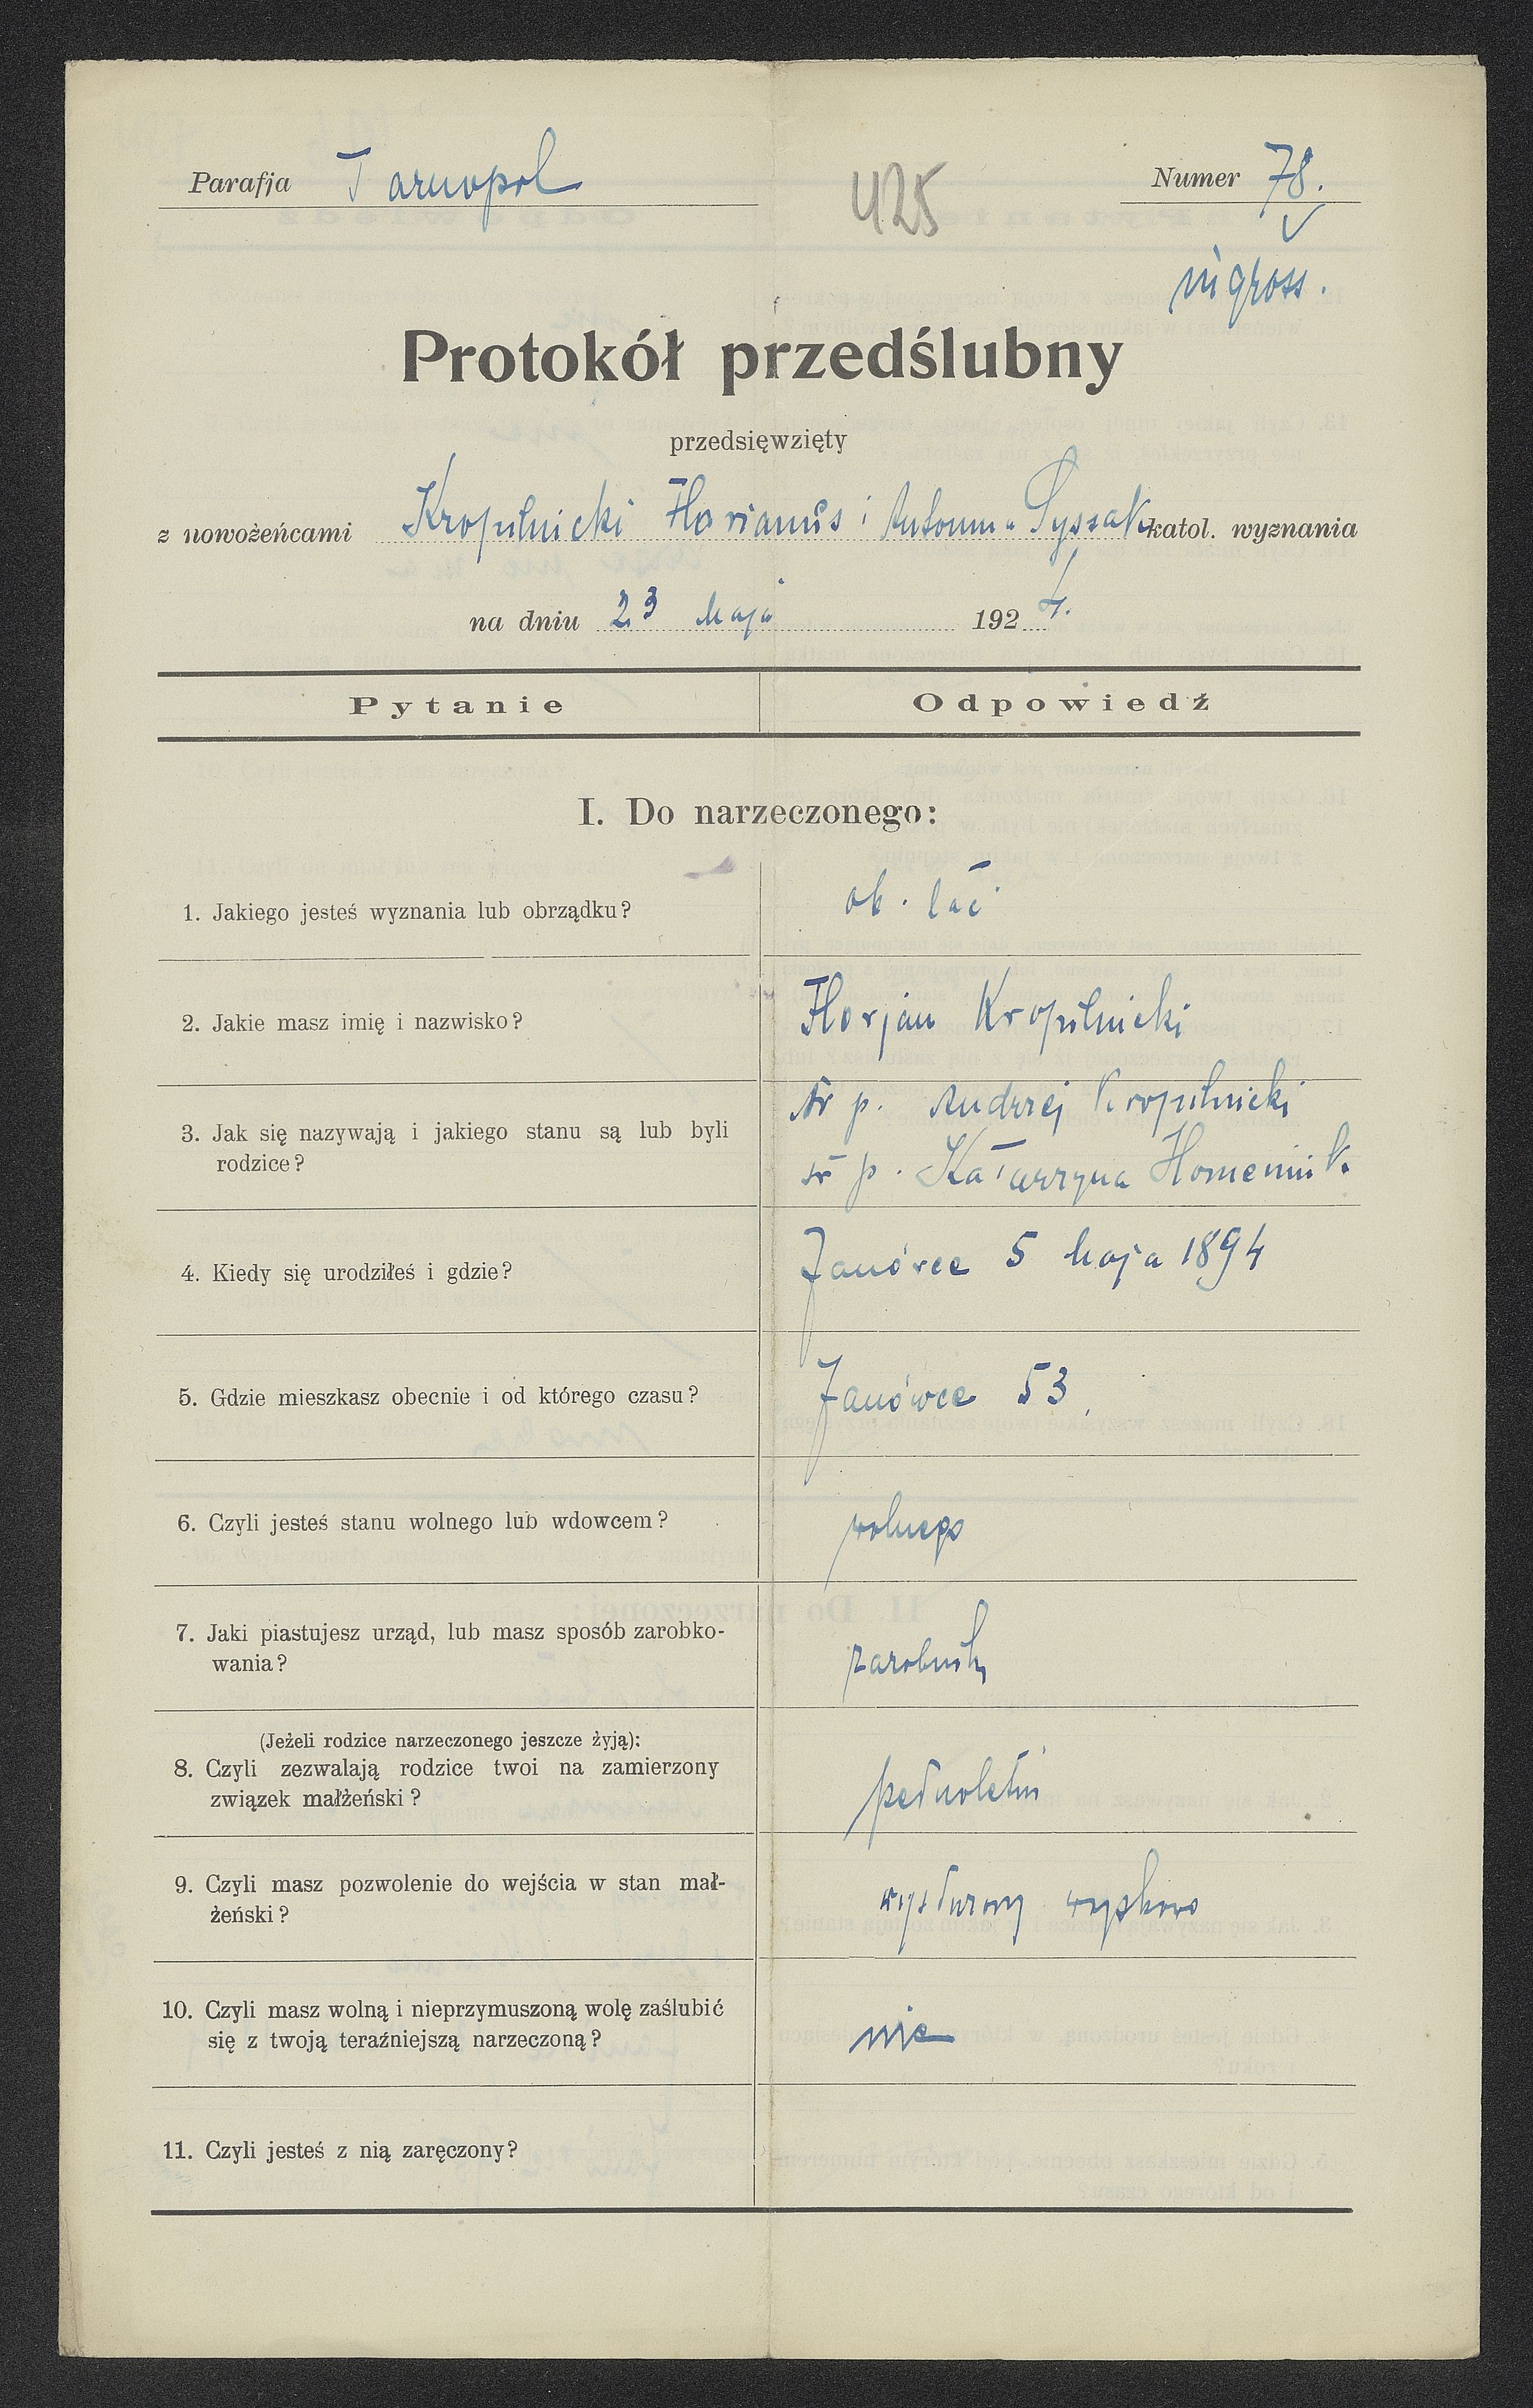 Parafja Tarnopol
425
Numer 78.
ingross.
Protokół przedślubny
przedsięwzięty
z nowożeńcami Kropilnicki Florianus i Antonina Syszak katol. wyznania
na dniu 23 Maja 1924.
Pytanie Odpowiedź
I. Do narzeczonego:
1. Jakiego jesteś wyznania lub obrządku?
ob. łać
2. Jakie masz imię i nazwisko?
Florjan Kropilnicki
3. Jak się nazywają i jakiego stanu są lub byli
rodzice?
śr p. Andrzej Kropilnicki
śr p. Katarzyna Homeniuk
4. Kiedy się urodziłeś i gdzie?
Janówce 5 Maja 1894
5. Gdzie mieszkasz obecnie i od którego czasu?
Janówce 53
6. Czyli jesteś stanu wolnego lub wdowcem?
wolnego
7. Jaki piastujesz urząd, lub masz sposób zarobko-
wania?
zarobnik
(Jeżeli rodzice narzeczonego jeszcze żyją):
8. Czyli zezwalają rodzice twoi na zamierzony
związek małżeński?
pełnoletni
9. Czyli masz pozwolenie do wejścia w stan mał-
żeński?
wysłużony
10. Czyli masz wolną i nieprzymuszoną wolę zaślubić
się z twoją teraźniejszą narzeczoną?
nie
11. Czyli jesteś z nią zaręczony?